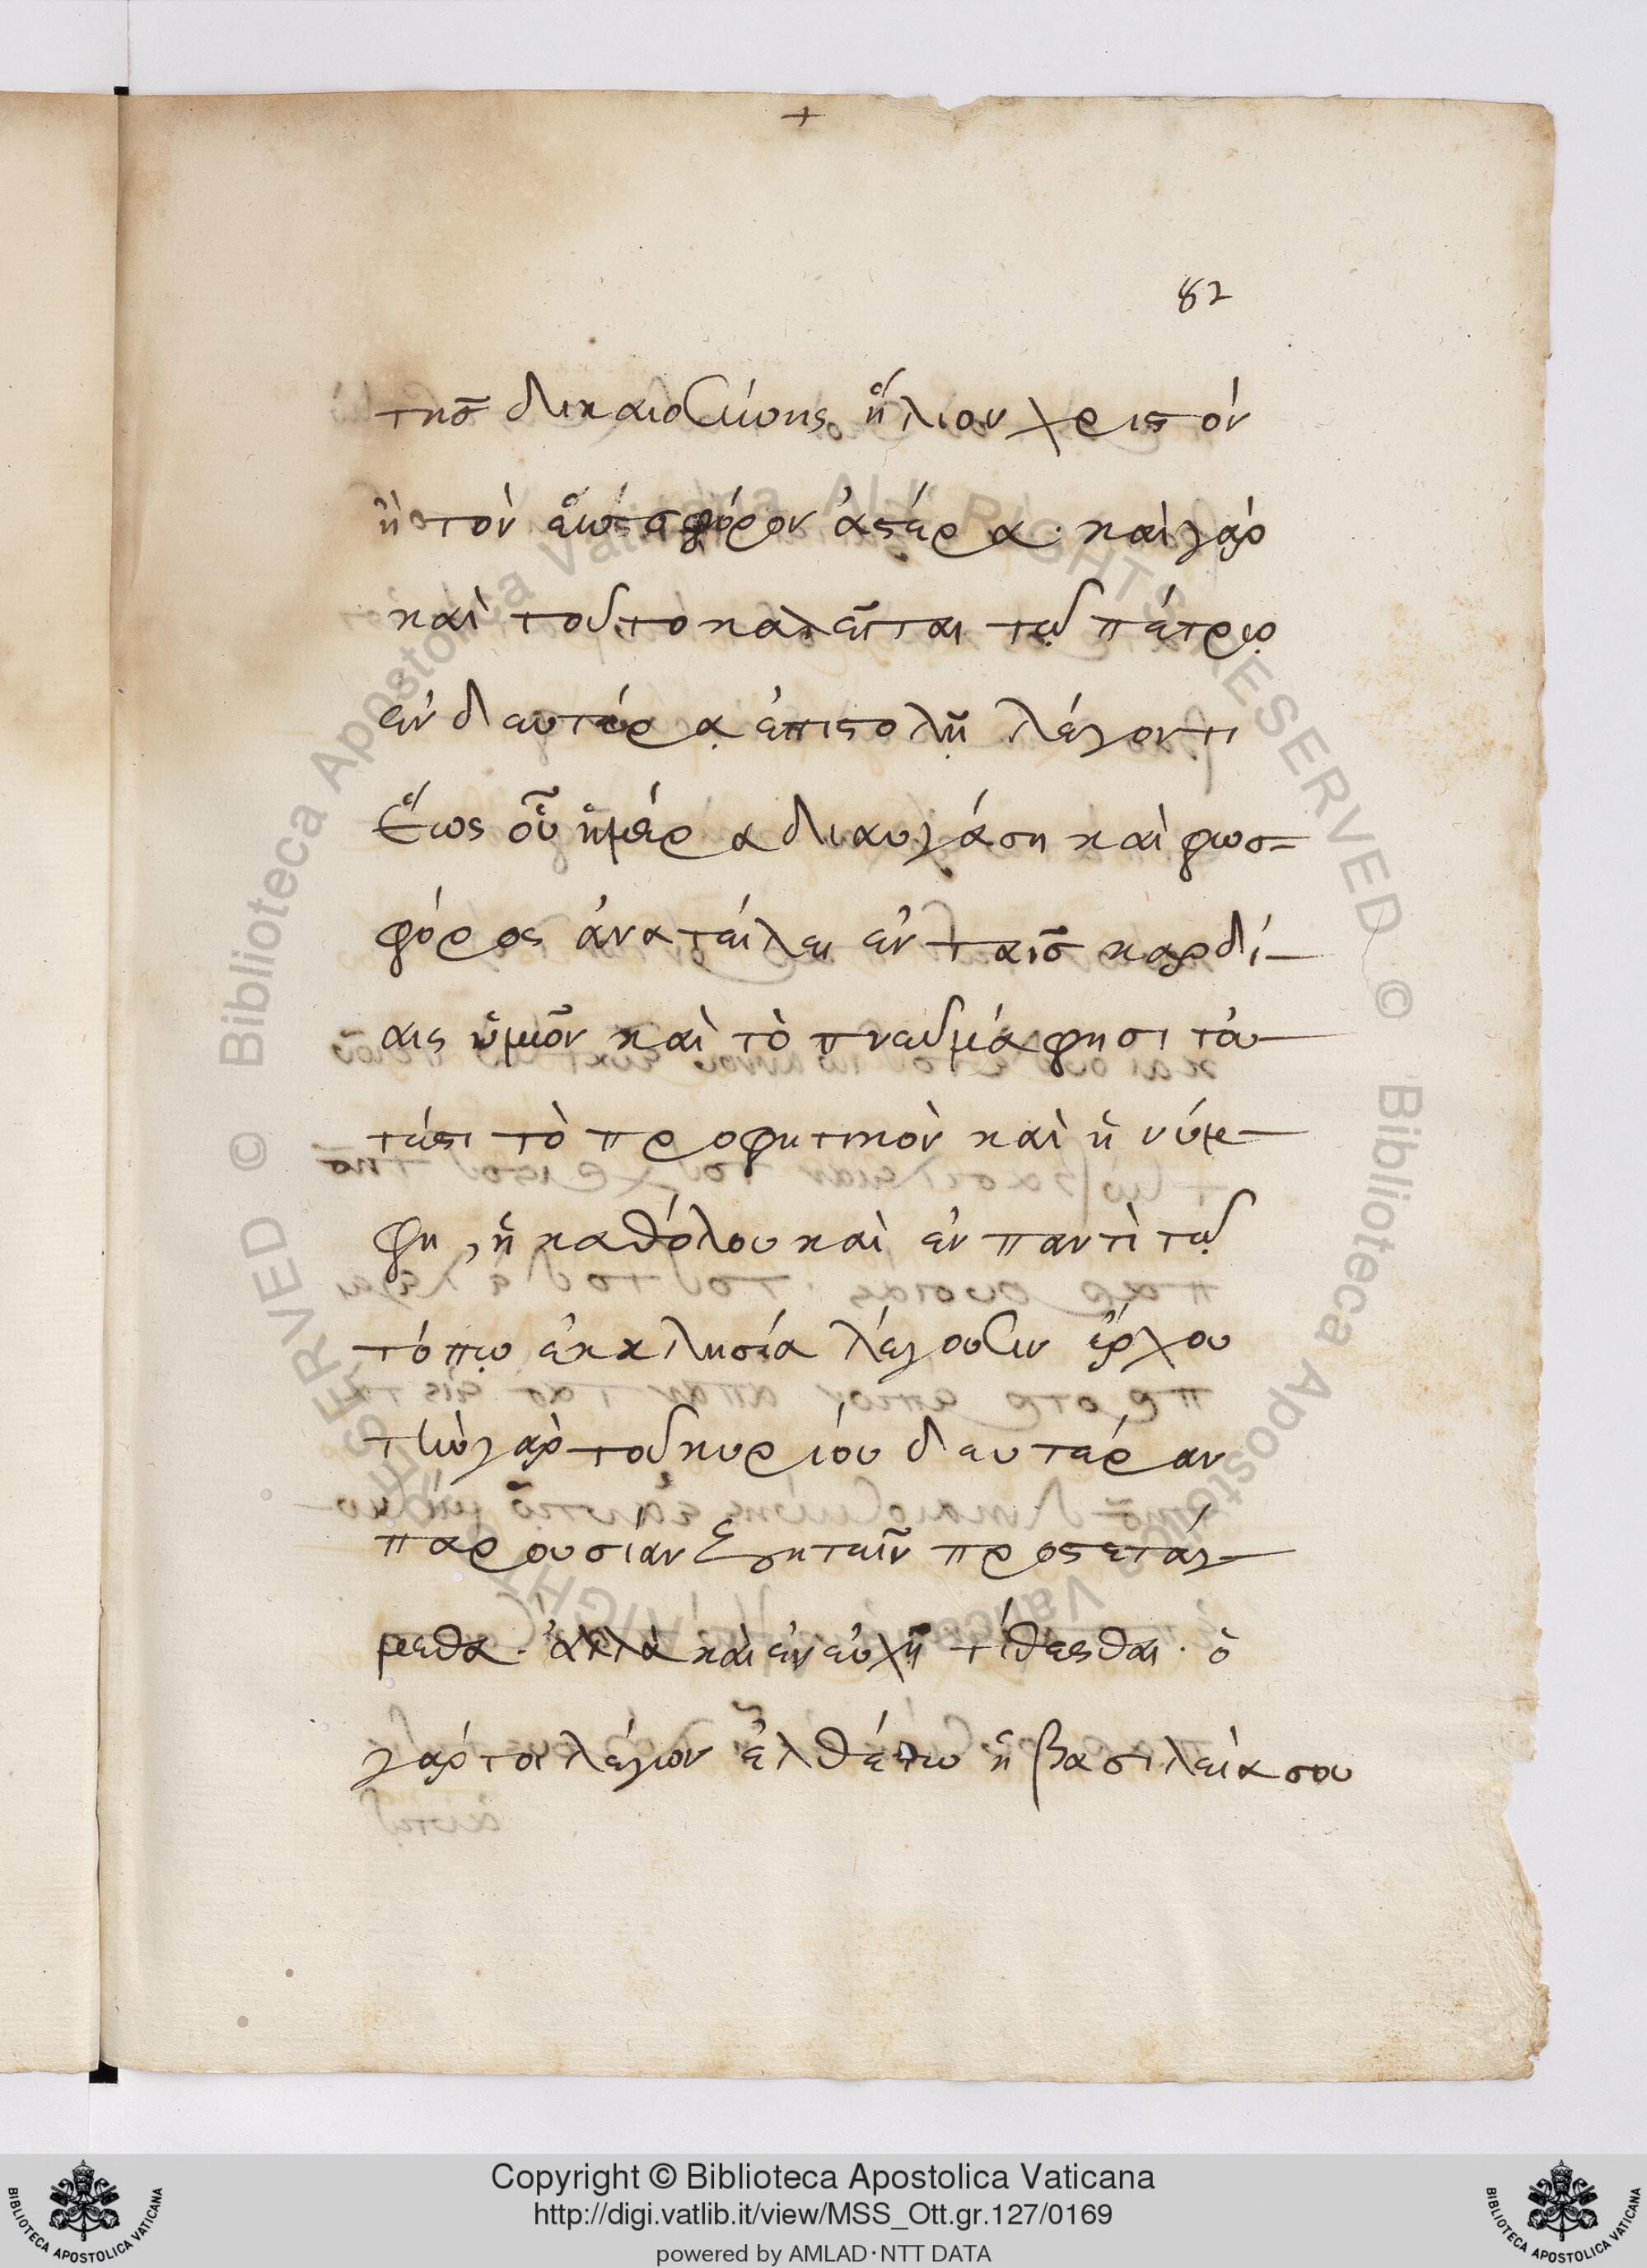 +
82
τῆσ δικαιοσύνης ἥλιον χριστόν
ἢ τὸν ἑωσφόρον ἀστέρα· καὶ γὰρ
καὶ τοῦτο καλεῖται τῷ πέτρῳ
ἐν δευτέρᾳ ἐπιστολῇ λέγοντι
ἕως οὗ ἡμέρα διαυγάση καὶ φωσ=
φόρος ἀνατείλει ἐν ταῖσ καρδί-
αις ὑμῶν καὶ τὸ πνεῦμά φησι του-
τέστι τὸ προφητικὸν καὶ ἡ νύμ-
φη, ἡ καθόλου καὶ ἐν παντὶ τῷ
τόπῳ ἐκκλησία λέγουσιν ἔρχου
τὴν γὰρ τοῦ κυρίου δευτέραν
παρουσίαν ζητεῖν προσετάγ-
μεθα· ἀλλὰ καὶ ἐν εὐχῇ τίθεσθαι· ὁ
γάρ τοι λέγων ἐλθέτω ἡ βασιλεία σου
Biblioteca Apostolica Vaticana ALL RIGHTS RESERVED ©
Biblioteca Apostolica Vaticana ALL RIGHTS RESERVED ©
Copyright © Biblioteca Apostolica Vaticana
http://digi.vatlib.it/view/MSS_Ott.gr.127/0169
powered by AMLAD·NTT DATA
BIBLIOTECA APOSTOLICA VATICANA
BIBLIOTECA APOSTOLICA VATICANA